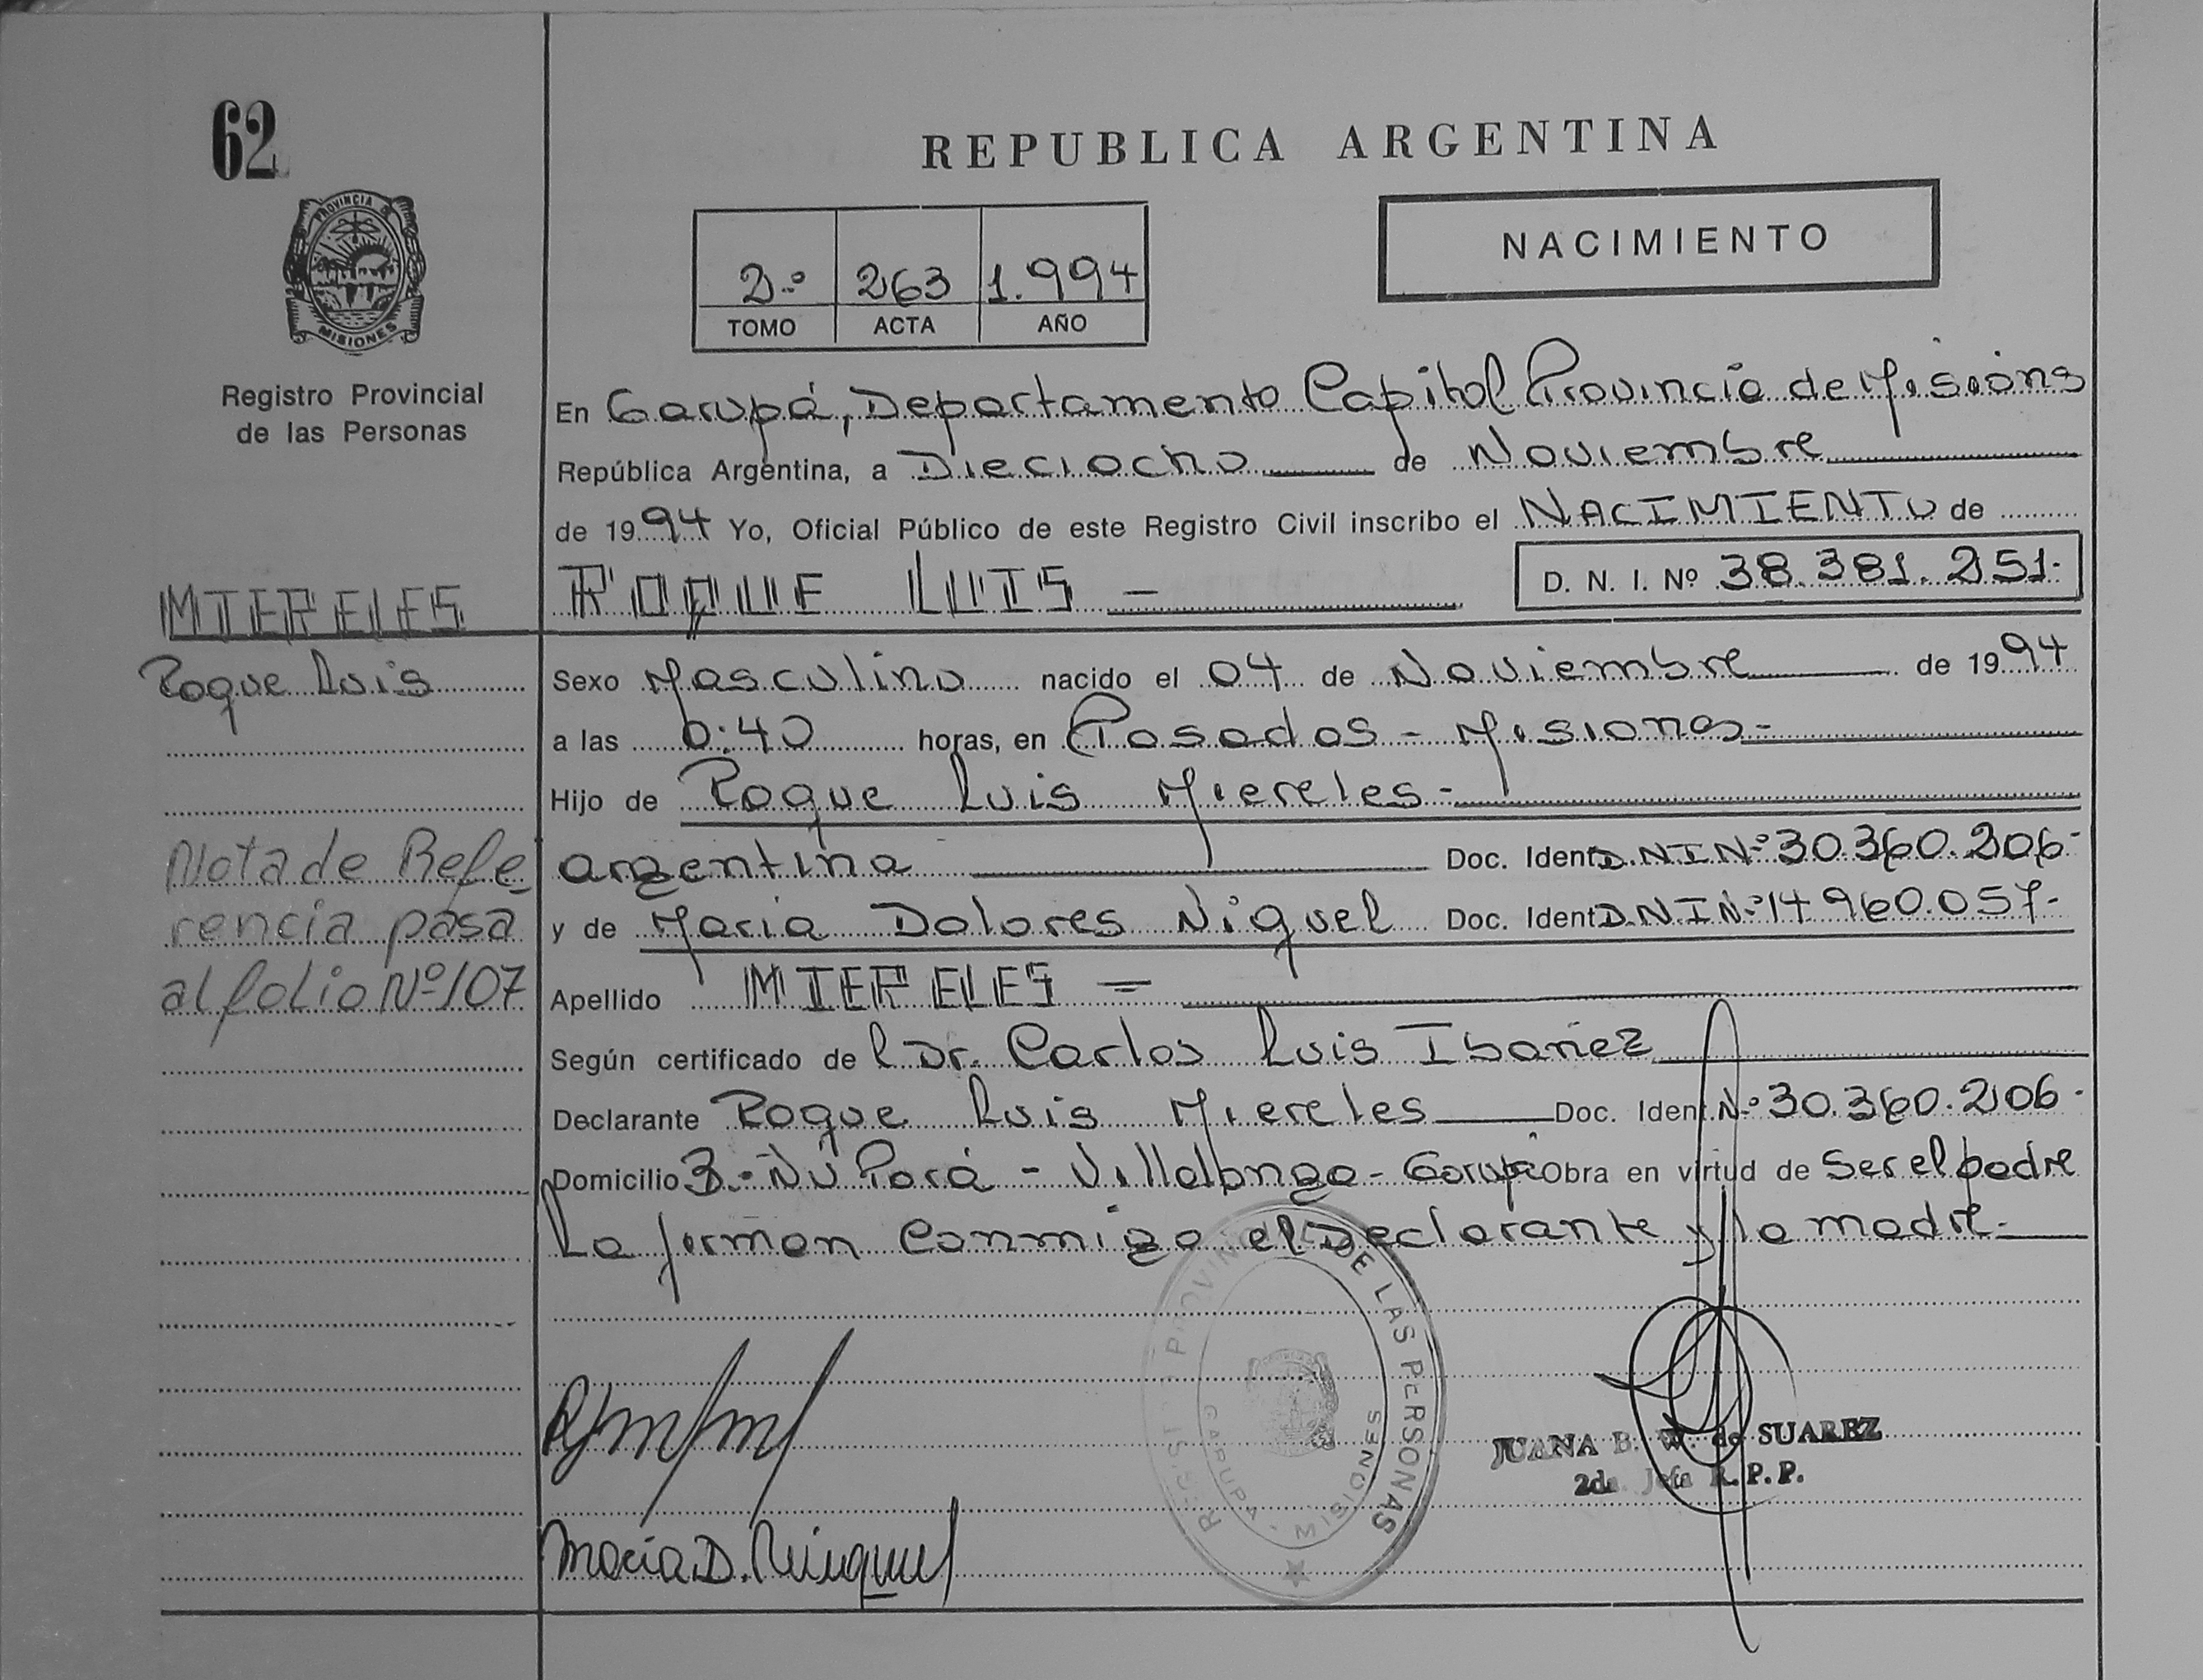 62
PROVINCIA D
MISIONES
Registro Provincial
de las Personas
MIERELES
Roque Luis
Nota de Refe
rencia pasa
al folio Nº 107
REPUBLICA ARGENTINA
2.º 263 1.994
TOMO ACTA AÑO
NACIMIENTO
En Garupá, Departamento Capital Provincia de Misions
República Argentina, a Dieciocho de Noviembre
de 1994 Yo, Oficial Público de este Registro Civil inscribo el NACIMIENTO de
ROQUE LUIS - D. N. I. Nº 38.381.251.
Sexo Masculino nacido el 04 de Noviembre de 1994
a las 0:40 horas, en Posadas - Misiones -
Hijo de Roque Luis Miereles -
argentina Doc. Ident. D.N.I Nº 30.360.206-
y de Maria Dolores Niquel Doc. Ident D.N.I Nº 14.960.057-
Apellido MIERELES =
Según certificado de l Dr. Carlos Luis Ibañez
Declarante Roque Luis Miereles Doc. Ident. Nº 30.360.206.
Domicilio B.º Ñu Porá - Villalonga - Garupá Obra en virtud de Ser el padre
La firman conmigo el Declarante y la madre.
REGIST PROVIN DE LAS PERSONAS
GARUPA - MISIONES
JUANA B. W. de SUAREZ
2da. Jefa R. P. P.
Maria D.